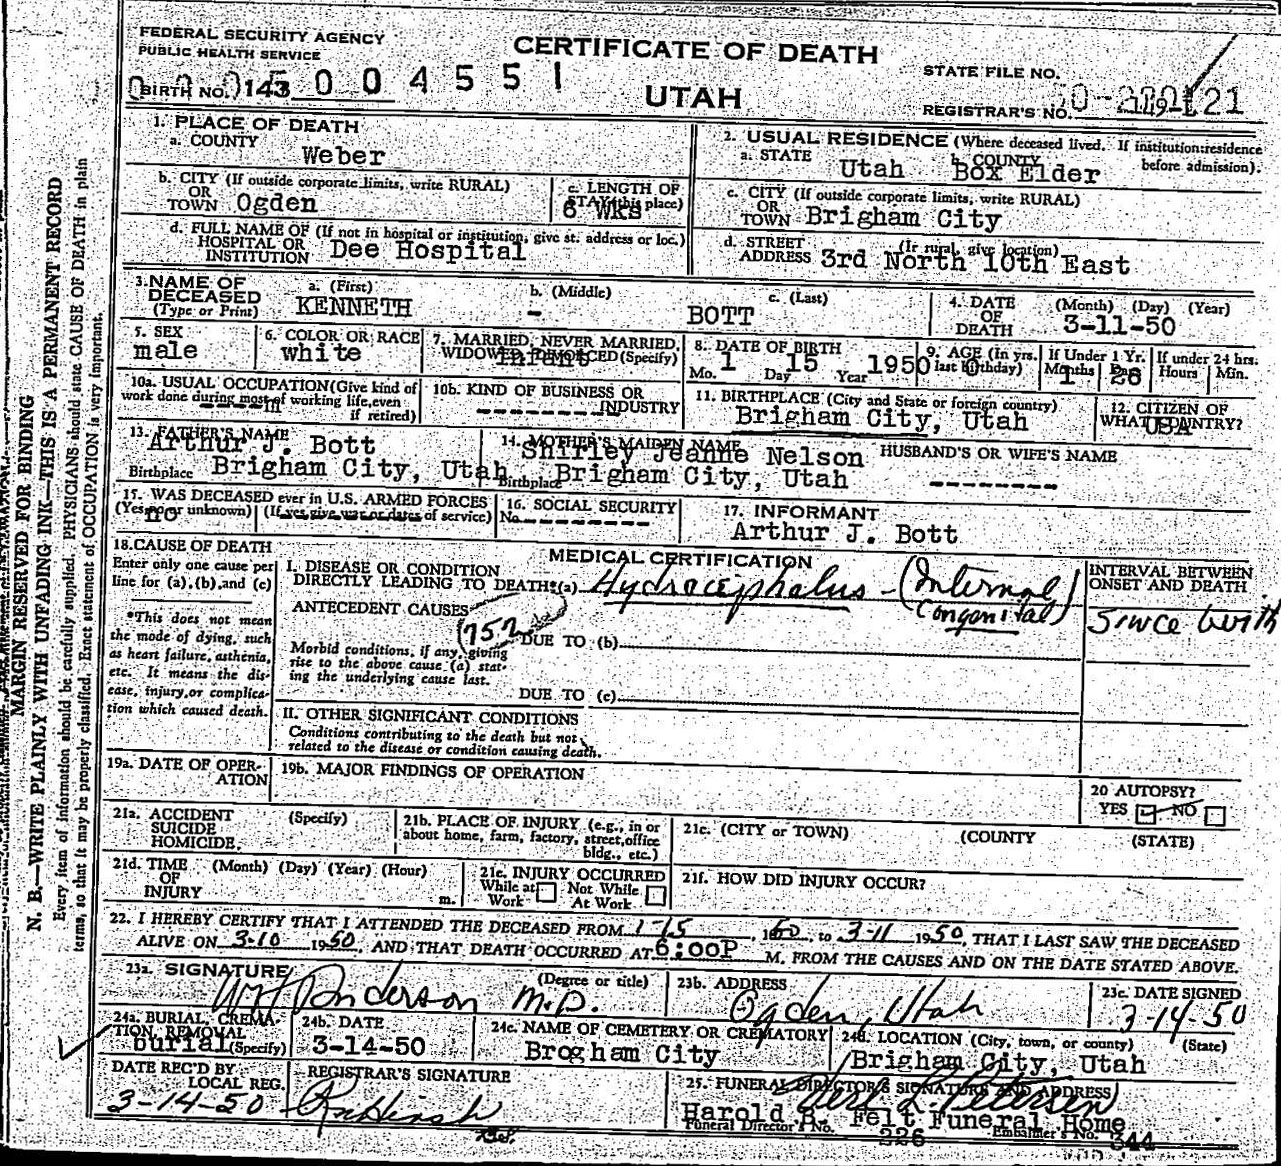 FEDERAL SECURITY AGENCY
PUBLIC HEALTH SERVICE
CERTIFICATE OF DEATH
UTAH
BIRTH NO. 143 5 0 0 4 5 5 1
STATE FILE NO.
REGISTRAR'S NO. 149
MARGIN RESERVED FOR BINDING
N. B.—WRITE PLAINLY WITH UNFADING INK—THIS IS A PERMANENT RECORD
Every item of information should be carefully supplied. PHYSICIANS should state CAUSE OF DEATH in plain
terms, so that it may be properly classified. Exact statement of OCCUPATION is very important.
1. PLACE OF DEATH
a. COUNTY
Weber
2. USUAL RESIDENCE (Where deceased lived. If institution: residence
before admission).
a. STATE Utah b. COUNTY Box Elder
b. CITY (If outside corporate limits, write RURAL)
OR
TOWN Ogden
c. LENGTH OF
STAY (this place)
6 WKS
c. CITY (If outside corporate limits, write RURAL)
OR
TOWN Brigham City
d. FULL NAME OF (If not in hospital or institution, give st. address or loc.)
HOSPITAL OR
INSTITUTION Dee Hospital
d. STREET (If rural, give location)
ADDRESS 3rd North 10th East
3. NAME OF
DECEASED
(Type or Print)
a. (First)
KENNETH
b. (Middle)
-
c. (Last)
BOTT
4. DATE
OF
DEATH
(Month) (Day) (Year)
3-11-50
5. SEX
male
6. COLOR OR RACE
white
7. MARRIED, NEVER MARRIED,
WIDOWED, DIVORCED (Specify)
Infant
8. DATE OF BIRTH
Mo. 1 Day 15 Year 1950
9. AGE (In yrs.
last birthday) 0
If Under 1 Yr.
Months 1 Days 26
If under 24 hrs.
Hours Min.
10a. USUAL OCCUPATION (Give kind of
work done during most of working life, even
if retired)
10b. KIND OF BUSINESS OR
INDUSTRY
11. BIRTHPLACE (City and State or foreign country)
Brigham City, Utah
12. CITIZEN OF
WHAT COUNTRY?
USA
13. FATHER'S NAME
Arthur J. Bott
Birthplace Brigham City, Utah
14. MOTHER'S MAIDEN NAME
Shirley Jeanne Nelson
Birthplace Brigham City, Utah
HUSBAND'S OR WIFE'S NAME
--------
15. WAS DECEASED ever in U.S. ARMED FORCES
(Yes, no or unknown) (If yes give war or dates of service)
no
16. SOCIAL SECURITY
No. --------
17. INFORMANT
Arthur J. Bott
18. CAUSE OF DEATH
Enter only one cause per
line for (a), (b), and (c)
*This does not mean
the mode of dying, such
as heart failure, asthenia,
etc. It means the dis-
ease, injury, or complica-
tion which caused death.
MEDICAL CERTIFICATION
I. DISEASE OR CONDITION
DIRECTLY LEADING TO DEATH*(a) Hydrocephalus - (Internal
Congenital)
ANTECEDENT CAUSES
752
DUE TO (b)
Morbid conditions, if any, giving
rise to the above cause (a) stat-
ing the underlying cause last.
DUE TO (c)
II. OTHER SIGNIFICANT CONDITIONS
Conditions contributing to the death but not
related to the disease or condition causing death.
INTERVAL BETWEEN
ONSET AND DEATH
Since birth
19a. DATE OF OPER-
ATION
19b. MAJOR FINDINGS OF OPERATION
20 AUTOPSY?
YES NO
21a. ACCIDENT
SUICIDE
HOMICIDE
(Specify)
21b. PLACE OF INJURY (e.g., in or
about home, farm, factory, street, office
bldg., etc.)
21c. (CITY or TOWN) (COUNTY (STATE)
21d. TIME
OF
INJURY
(Month) (Day) (Year) (Hour)
m.
21e. INJURY OCCURRED
While at Work Not While At Work
21f. HOW DID INJURY OCCUR?
22. I HEREBY CERTIFY THAT I ATTENDED THE DECEASED FROM 1-15, 1950, to 3-11 1950, THAT I LAST SAW THE DECEASED
ALIVE ON 3-10 1950, AND THAT DEATH OCCURRED AT 6:00P M, FROM THE CAUSES AND ON THE DATE STATED ABOVE.
23a. SIGNATURE (Degree or title)
Anderson M.D.
23b. ADDRESS
Ogden, Utah
23c. DATE SIGNED
3-14-50
24a. BURIAL, CREMA-
TION, REMOVAL
burial (Specify)
24b. DATE
3-14-50
24c. NAME OF CEMETERY OR CREMATORY
Brogham City
24d. LOCATION (City, town, or county) (State)
Brigham City, Utah
DATE REC'D BY
LOCAL REG.
3-14-50
REGISTRAR'S SIGNATURE
25. FUNERAL DIRECTOR'S SIGNATURE AND ADDRESS
Harold B. Felt Funeral Home
Funeral Director's No. 226 Embalmer's No. 344